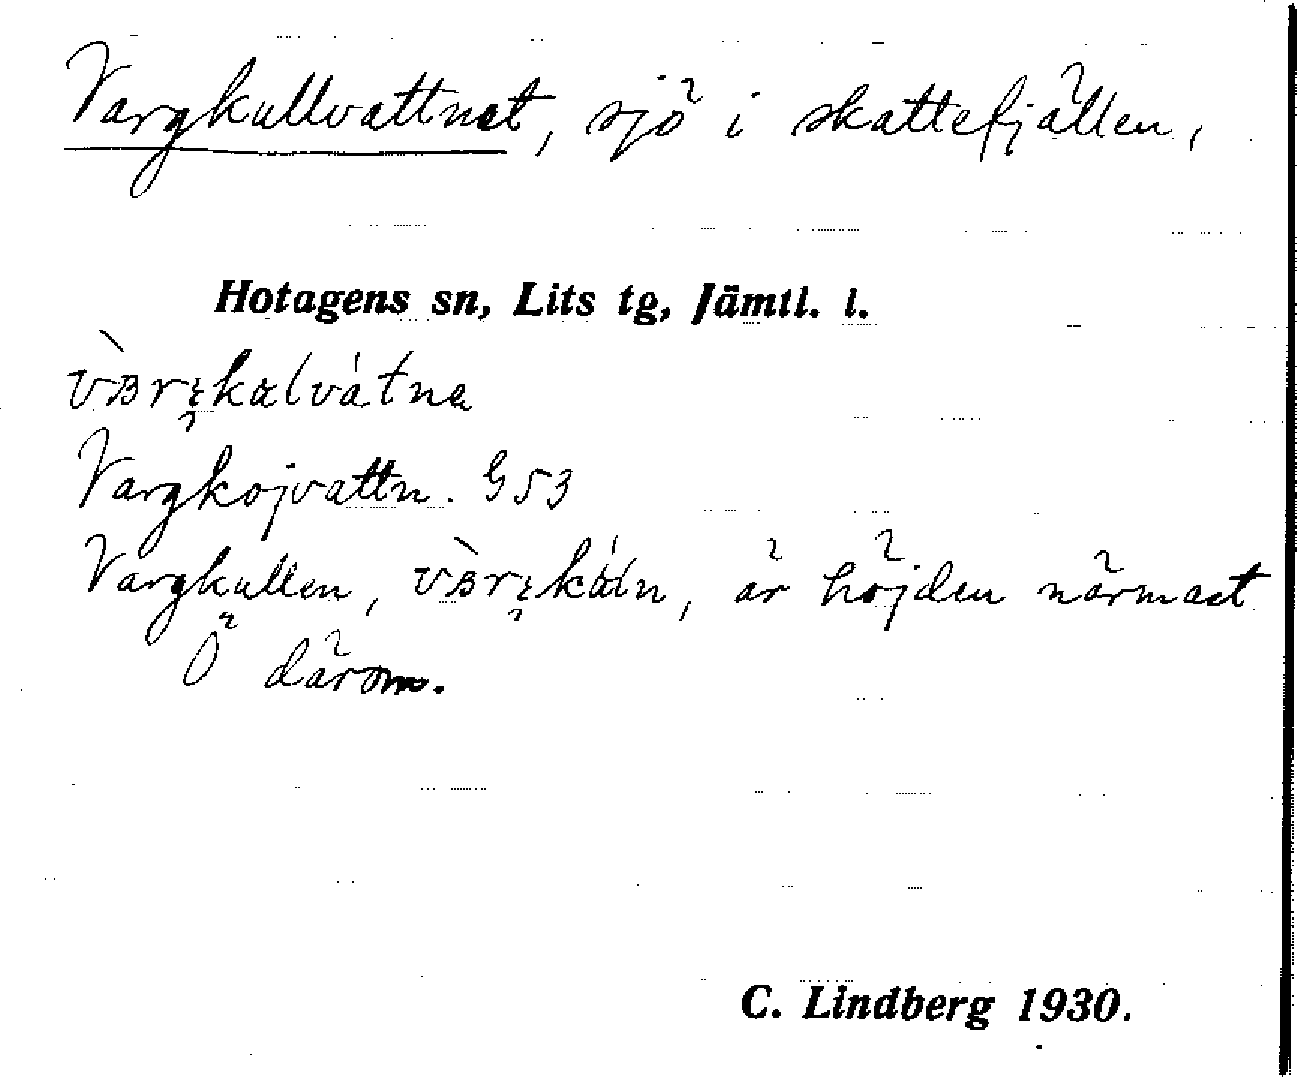 Vargkullvattnet, sjö i skattefjällen,
Hotagens sn, Lits tg, Jämtl. l.
Vargkojvattn. G53
Vargkullen, är höjden närmast
Ö därom.
C. Lindberg 1930.